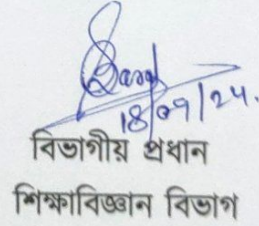 18/09/24.
বিভাগীয় প্রধান
শিক্ষাবিজ্ঞান বিভাগ